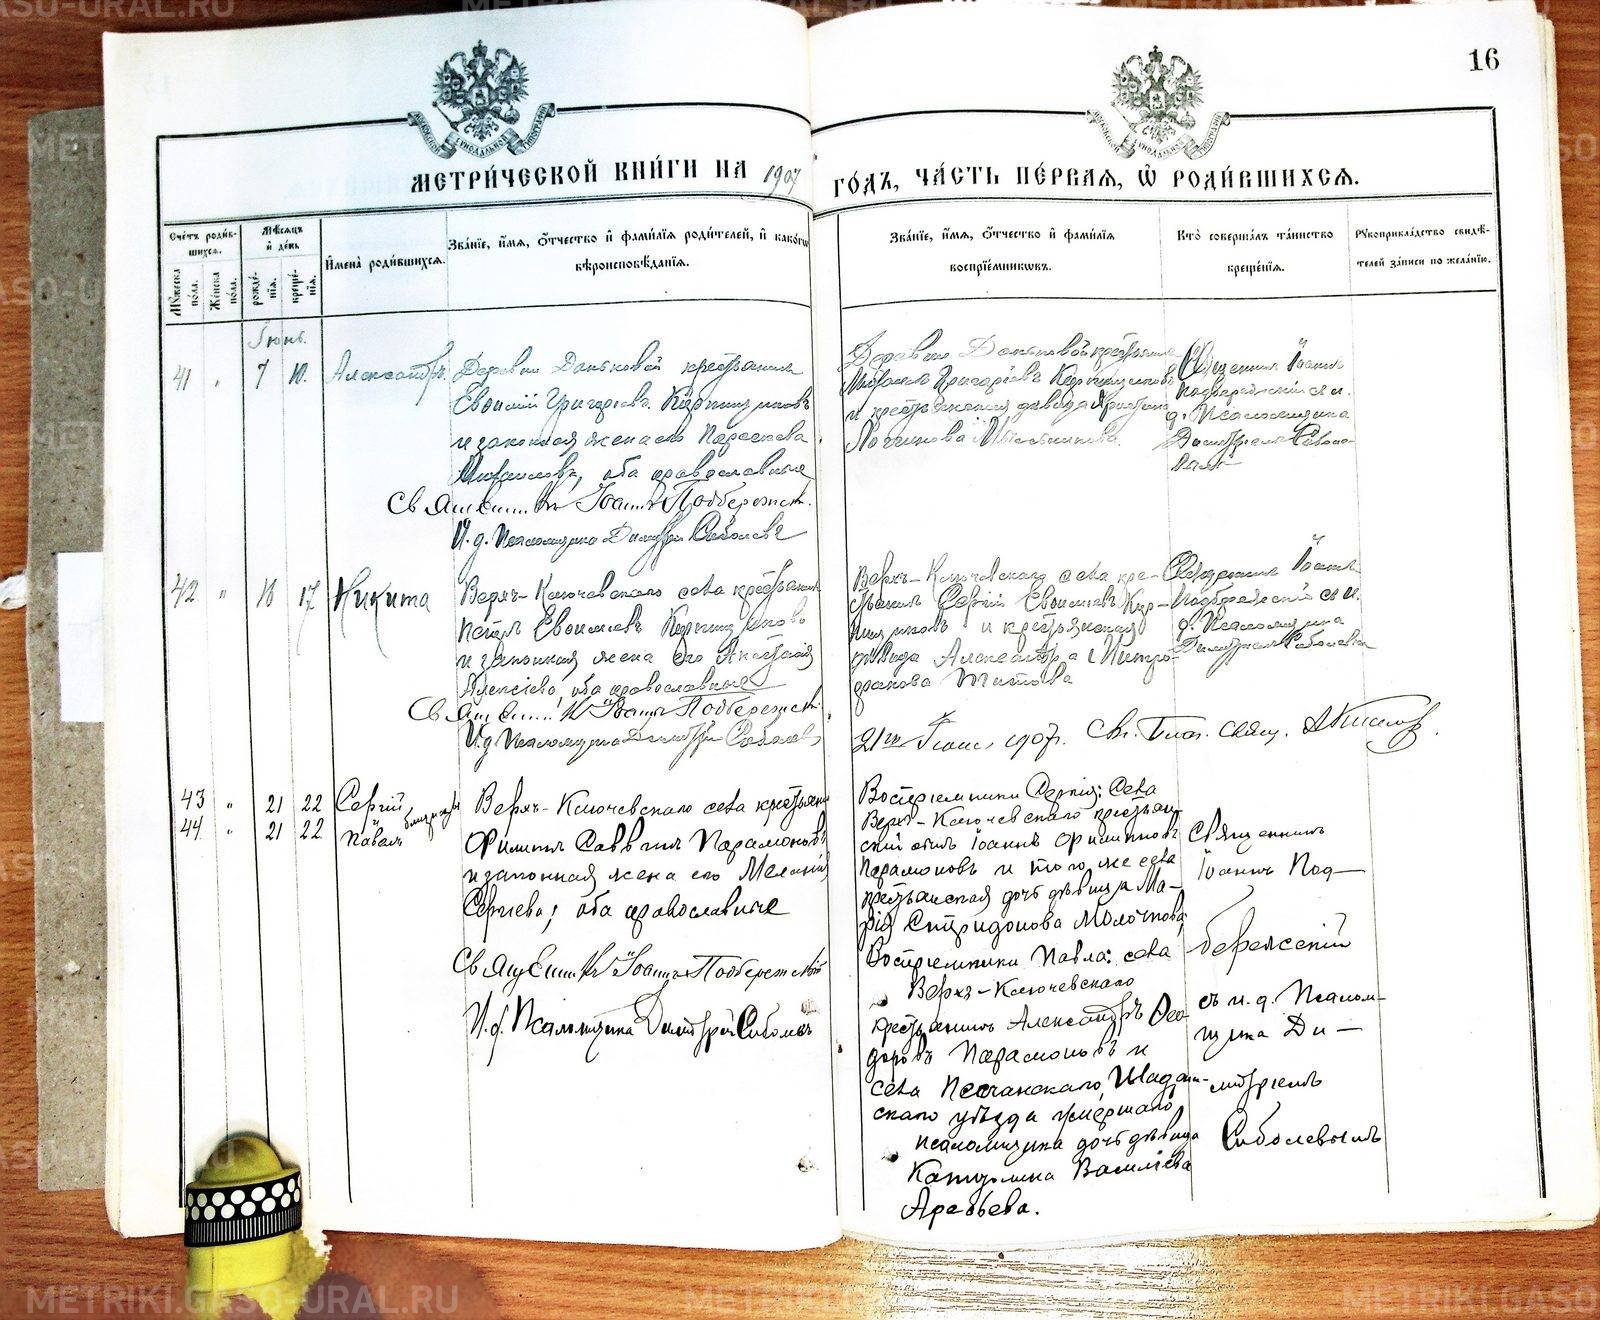 16
МЕТРИ́ЧЕСКОЙ КНИ́ГИ НА 1907 ГО́ДЪ, ЧА́СТЬ ПЕ́РВАЯ, Ѿ РОДИ́ВШИХСЯ.
Сче́тъ роди́в-
шихся.
Мꙋ́жеска пола.
Же́нска пола.
Мѣ́сяцъ
и де́нь
рожде́-
нія.
креще́-
нія.
Имена̀ роди́вшихся.
Зва́ніе, и́мя, о́тчество и фами́лія роди́телей, и како́гѡ
вѣроисповѣ́данія.
Зва́ніе, и́мя, о́тчество и фами́лія
воспріе́мниковъ.
Кто̀ соверша́лъ та́инство
креще́нія.
Рꙋкоприкла́дство свидѣ́-
телей за́писи по жела́нію.
Іюнь.
41 " 7 10. Александръ.
Деревни Даньковой крестьянинъ
Евѳимій Григоріевъ
и законная жена его Параскева
Михаилова, оба православные
Священникъ Іоаннъ Подбережск.
И. д. Псаломщика Димитрій Соболевъ
Деревни Даньковой крестьянинъ
Михаилъ Григоріевъ
и крестьянская дѣвица
Священникъ Іоаннъ
Подбережскій съ и.
д. Псаломщика
Димитріемъ
42 " 16 17 Никита
Верхъ-Ключевскаго села крестьянинъ
Петръ Евѳиміевъ
и законная жена его Анастасія
Алексѣева, оба православные
Священникъ Іоаннъ Подбережск.
И. д. Псаломщика Димитрій Соболевъ
Верхъ-Ключевскаго села кре-
стьянинъ Сергій Евѳиміевъ
и крестьянская
дѣвица Александра Митро-
фанова
Священникъ Іоаннъ
Подбережскій съ и.
д. Псаломщика
Димитріемъ Соболевымъ
21го 1907 г.
43 " 21 22 Сергій
44 " 21 22 Павелъ близнецы
Верхъ-Ключевскаго села крестьянинъ
Филиппъ Саввинъ Парамоновъ
и законная жена его Меланія
Сергіева; оба православные
Священникъ Іоаннъ Подбережскій
И. д. Псаломщика Димитрій Соболевъ
Воспріемники Сергія: села
Верхъ-Ключевскаго крестьян-
скій сынъ Іоаннъ Филипповъ
Парамоновъ и того-же села
крестьянская дочь дѣвица Ма-
рія Спиридонова Молочкова;
Воспріемники Павла: села
Верхъ-Ключевскаго
крестьянинъ Александръ Ѳео-
доровъ Парамоновъ и
села Песчанскаго, Шадрин-
скаго уѣзда умершаго
псаломщика дочь дѣвица
Катерина Василіева
Арефьева.
Священникъ
Іоаннъ Под-
бережскій
съ и. д. Псалом-
щика Ди-
митріемъ
Соболевымъ
METRIKI.GASO-URAL.RU